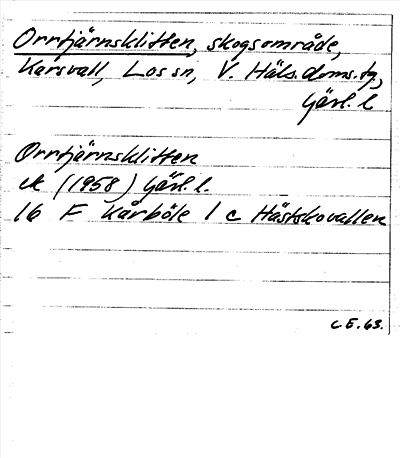 Orrtjärnsklitten, skogsområde,
Karsvall, Los sn, V. Häls. doms. tg,
Gävl. l
Orrtjärnsklitten
ek (1958) Gävl. l.
16 F Kårböle 1 c Hästskovallen
C.E. 63.